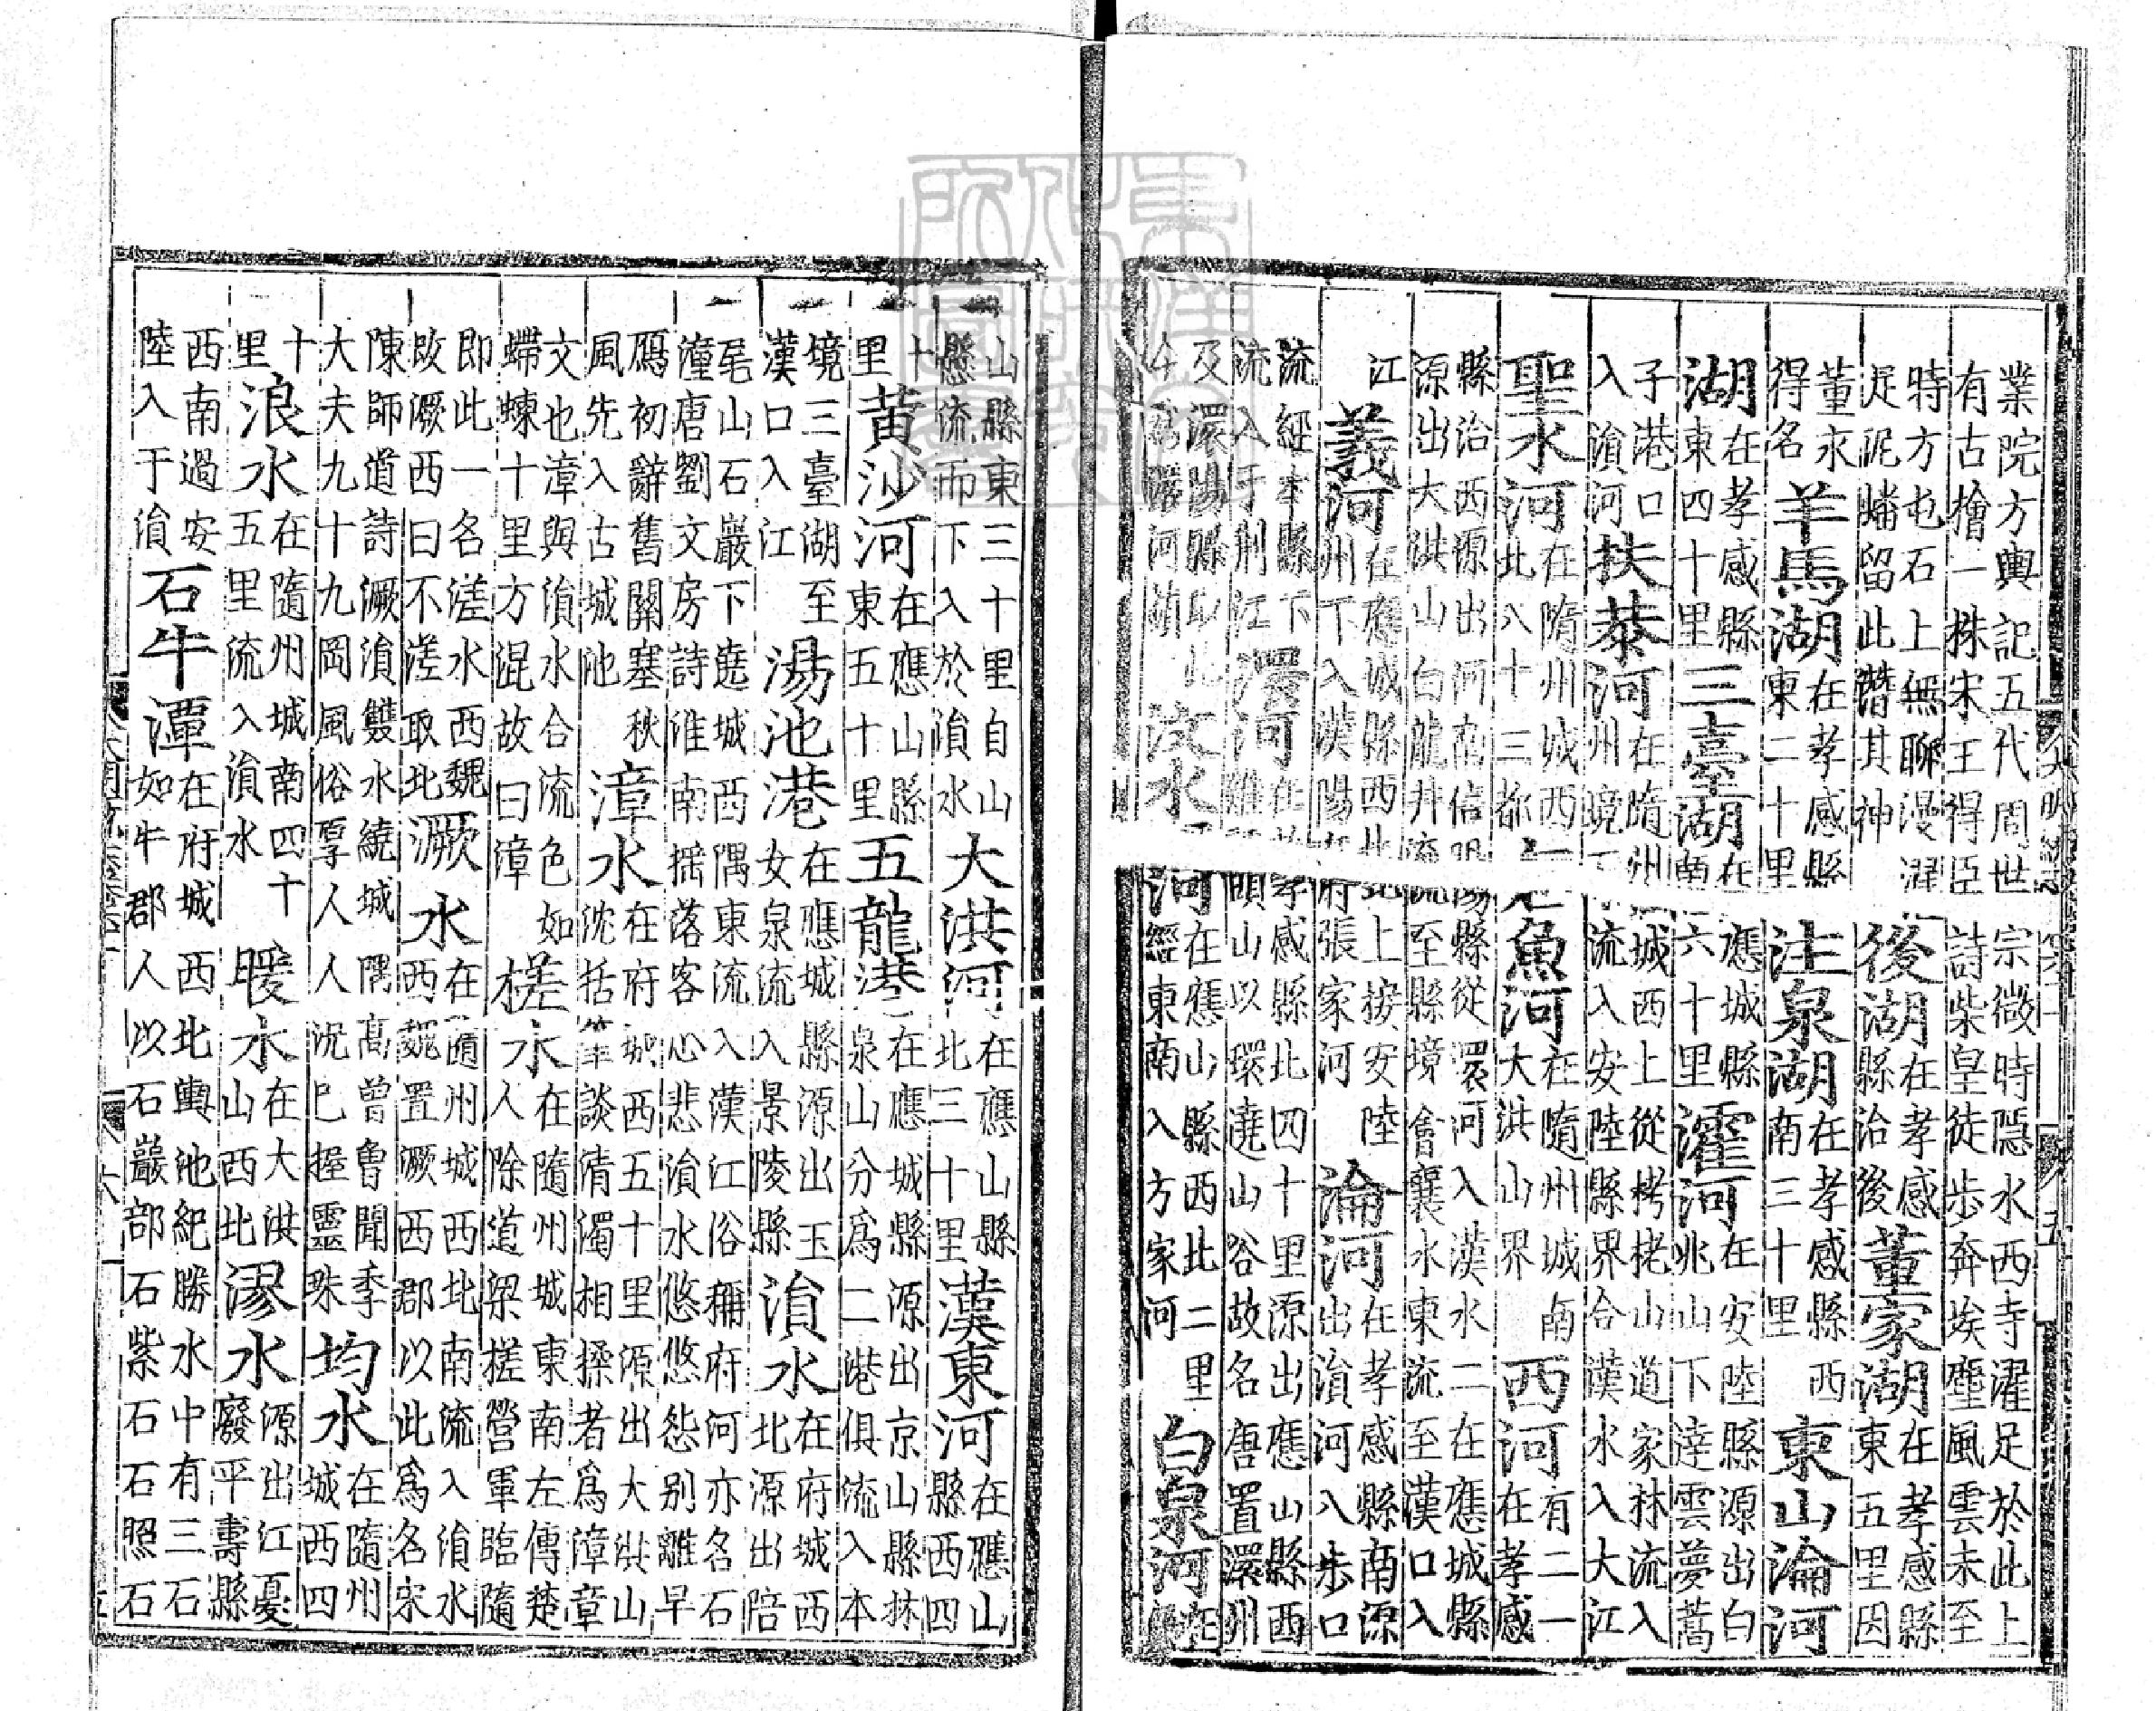 業院方輿記五代周世宗微時隱水西寺濯足於此上
有古檜一株宋王得臣詩柴皇徒步奔埃塵風雲未至
時方屯石上無聊漫濯
足泥蟠留此潛其神
後湖 在孝感縣治後
董家湖 在孝感縣東五里因
董永得名
羊馬湖 在孝感縣東二十里
注泉湖 在孝感縣西南三十里
東山淪河
湖 在孝感縣東四十里
三臺湖 在應城縣南六十里
灌河 在安陸縣源出白兆山下達雲夢蒿
子港口入溳河
扶恭河 在隨州城西上從栲栳山道家林流入
州境下流入安陸縣界合漢水入大江
聖水河 在隨州城西北八十三都
魚河 在隨州城南大洪山界
西河 有二一在孝感
縣治西源出河南信陽縣從澴河入漢水二在應城縣
源出大洪山白龍井流至縣境會襄水東流至漢口入
江
義河 在應城縣西北上接安陸州下入漢陽府張家河
淪河 在孝感縣南源出溳河入步口
流經本縣下流入于荆江
澴河 在孝感縣北四十里源出應山縣西
雞頭山以環遶山谷故名唐置澴州
及澴陽縣以此今為澴河鎮
汶水河 在應山縣西北二里經東南入方家河
白泉河 在
山縣東三十里自山
縣流而下入於溳水
大洪河 在應山縣北三十里
漢東河 在應山縣西四
十里
黄沙河 在應山縣東五十里
五龍港 在應城縣源出京山縣林
泉山分爲二港俱流入本
境三臺湖至漢口入江
湯池港 在應城縣源出玉女泉流入景陵縣
溳水 在府城西北源出陪
尾山石巖下遶城西隅東流入漢江俗稱府河亦名石
潼唐劉文房詩淮南摇落客心悲溳水悠悠怨别離早
鴈初辭舊關塞秋
風先入古城池
漳水 在府城西五十里源出大洪山
沈括筆談清濁相揉者爲漳章
文也漳與溳水合流色如
螮蝀十里方混故曰漳
槎水 在隨州城東南左傳楚
人除道梁槎營軍臨隨
即此一名溠水西魏
改㵐西曰不溠取北
㵐水 在隨州城西北南流入溳水
西魏置㵐西郡以此爲名宋
陳師道詩㵐溳雙水繞城隅髙曾魯聞季
大夫九九十九岡風俗厚人人況已握靈珠
均水 在隨州城西四
十里
浪水 在隨州城南四十五里流入溳水
暖水 在大洪山西北
漻水 源出江憂廢平壽縣
西南過安陸入于溳
石牛潭 在府城西北輿池紀勝水中有三石
如牛郡人以石巖部石紫石石照石